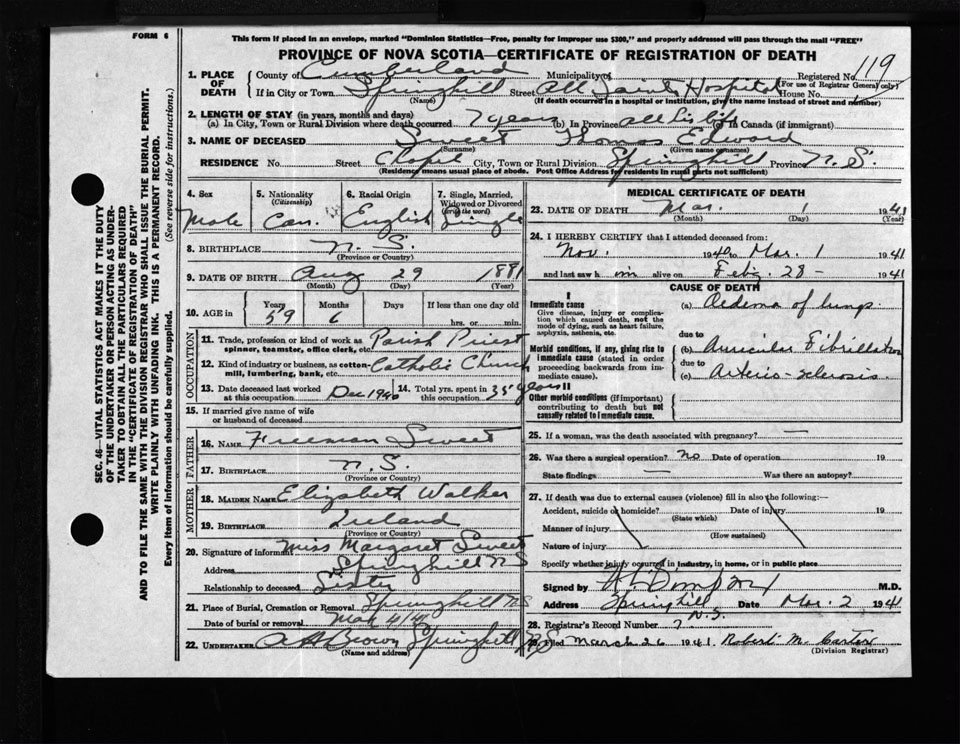 FORM 6
This form if placed in an envelope, marked "Dominion Statistics—Free, penalty for improper use $300," and properly addressed will pass through the mail "FREE"
PROVINCE OF NOVA SCOTIA—CERTIFICATE OF REGISTRATION OF DEATH
SEC. 46—VITAL STATISTICS ACT MAKES IT THE DUTY
OF THE UNDERTAKER OR PERSON ACTING AS UNDER-
TAKER TO OBTAIN ALL THE PARTICULARS REQUIRED
IN THE "CERTIFICATE OF REGISTRATION OF DEATH"
AND TO FILE THE SAME WITH THE DIVISION REGISTRAR WHO SHALL ISSUE THE BURIAL PERMIT.
WRITE PLAINLY WITH UNFADING INK. THIS IS A PERMANENT RECORD.
Every item of Information should be carefully supplied. (See reverse side for instructions.)
1. PLACE OF DEATH County of Cumberland Municipality of Registered No. 119
(For use of Registrar General only)
If in City or Town Springhill Street All Saints Hospital House No.
(Name) (If death occurred in a hospital or institution, give the name instead of street and number)
2. LENGTH OF STAY (in years, months and days)
(a) In City, Town or Rural Division where death occurred 7 years (b) In Province all his life (c) In Canada (if immigrant)
3. NAME OF DECEASED Sweet Thomas Edward
(Surname) (Given names)
RESIDENCE No. Street Chapel City, Town or Rural Division Springhill Province N.S.
(Residency means usual place of abode. Post Office Address for residents in rural parts not sufficient)
4. Sex Male
5. Nationality (Citizenship) Can.
6. Racial Origin English
7. Single, Married, Widowed or Divorced (write the word) Single
8. BIRTHPLACE N.S.
(Province or Country)
9. DATE OF BIRTH Aug 29 1881
(Month) (Day) (Year)
10. AGE in Years Months Days If less than one day old
59 6 hrs. or min.
OCCUPATION
11. Trade, profession or kind of work as spinner, teamster, office clerk, etc. Parish Priest
12. Kind of industry or business, as cotton-mill, lumbering, bank, etc. Catholic Church
13. Date deceased last worked at this occupation Dec 1940
14. Total yrs. spent in this occupation 35 years
15. If married give name of wife or husband of deceased
FATHER
16. NAME Freeman Sweet
17. BIRTHPLACE N.S.
(Province or Country)
MOTHER
18. MAIDEN NAME Elizabeth Walker
19. BIRTHPLACE Ireland
(Province or Country)
20. Signature of informant Miss Margaret Sweet
Address Springhill N S
Relationship to deceased Sister
21. Place of Burial, Cremation or Removal Springhill N.S
Date of burial or removal Mar 4/41
22. UNDERTAKER Brown Springhill N.S
(Name and address)
MEDICAL CERTIFICATE OF DEATH
23. DATE OF DEATH Mar. 1 1941
(Month) (Day) (Year)
24. I HEREBY CERTIFY that I attended deceased from:
Nov. 1940 to Mar. 1 1941
and last saw h im alive on Feb. 28 - 1941
CAUSE OF DEATH
I
Immediate cause
Give disease, injury or complication which caused death, not the mode of dying, such as heart failure, asphyxia, asthenia, etc.
(a) Oedema of lungs
due to
Morbid conditions, if any, giving rise to immediate cause (stated in order proceeding backwards from immediate cause).
(b) Auricular Fibrillation
due to
(c) Arterio-sclerosis
II
Other morbid conditions (if important) contributing to death but not causally related to immediate cause.
25. If a woman, was the death associated with pregnancy? —
26. Was there a surgical operation? No Date of operation 19
State findings — Was there an autopsy?
27. If death was due to external causes (violence) fill in also the following:—
Accident, suicide or homicide? Date of injury 19
(State which)
Manner of injury
(How sustained)
Nature of injury
Specify whether injury occurred in industry, in home, or in public place
Signed by M.D.
Address Springhill N.S. Date Mar. 2 1941
28. Registrar's Record Number 7
29. Filed March 26 1941. Robert M. Carter
(Division Registrar)